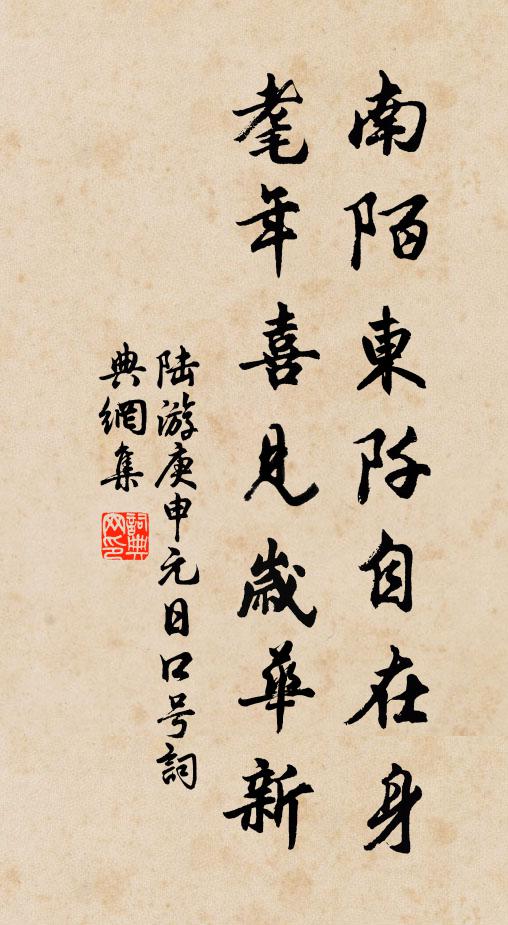 南陌東阡自在身
耄年喜見歲華新
陸游庚申元日口号詞
典網集
詞典
网印